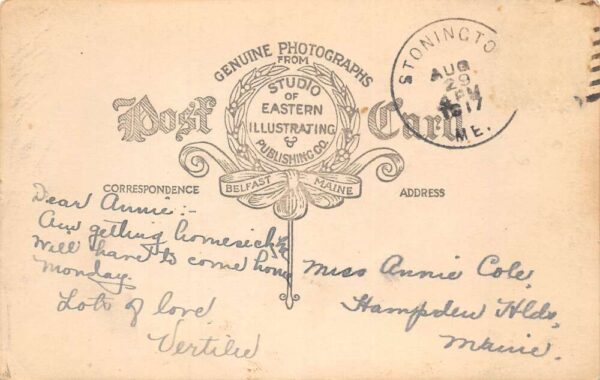 GENUINE PHOTOGRAPHS
FROM
STUDIO
OF
EASTERN
ILLUSTRATING
&
PUBLISHING CO.
Post Card
BELFAST MAINE
STONINGTO
AUG
29
PM
1917
ME.
CORRESPONDENCE
ADDRESS
Dear Annie:-
Am getting homesick
Will have to come home
Monday.
Lots of love
Miss Annie Cole,
Hampden Hlds,
Maine.